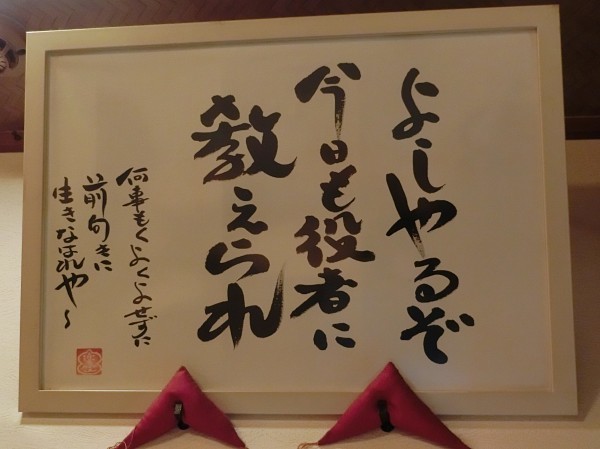 よしやるぞ
今日も役者に
教えられ
何事もくよくよせずに
前向きに
生きなはれや〜